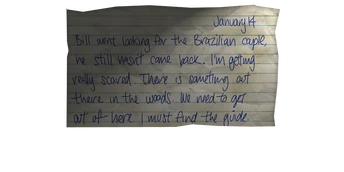 January 14
Bill went looking for the Brazilian couple,
he still hasn't came back. I'm getting
really scared. There is something out
there in the woods. We need to get
out of here. I must find the guide.